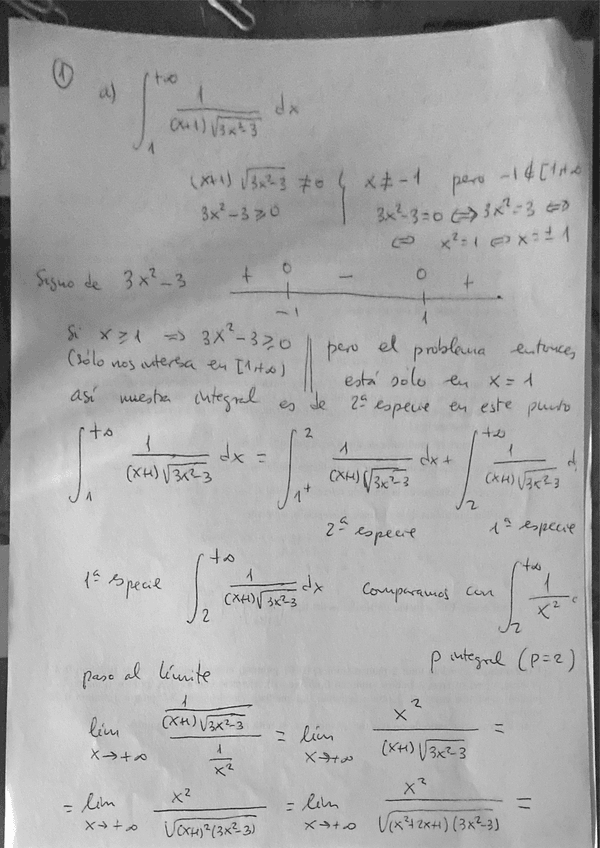 ①
a) ∫₁^{+∞} 1/((x+1)√(3x²-3)) dx
(x+1)√(3x²-3) ≠ 0 { x ≠ -1 pero -1 ∉ [1,+∞
3x²-3 ≥ 0 3x²-3=0 ⇔ 3x²=3 ⇔
⇔ x²=1 ⇔ x=±1
Signo de 3x²-3 + 0 - 0 +
-1 1
Si x ≥ 1 ⇒ 3x²-3 ≥ 0 || pero el problema entonces
(sólo nos interesa en [1,+∞) está sólo en x = 1
así nuestra integral es de 2ª especie en este punto
∫₁^{+∞} 1/((x+1)√(3x²-3)) dx = ∫_{1⁺}^{2} 1/((x+1)√(3x²-3)) dx + ∫₂^{+∞} 1/((x+1)√(3x²-3)) d
2ª especie 1ª especie
1ª especie ∫₂^{+∞} 1/((x+1)√(3x²-3)) dx Comparamos con ∫₂^{+∞} 1/x²
p integral (p=2)
paso al límite
lím_{x→+∞} (1/((x+1)√(3x²-3)))/(1/x²) = lím_{x→+∞} x²/((x+1)√(3x²-3)) =
= lím_{x→+∞} x²/√((x+1)²(3x²-3)) = lím_{x→+∞} x²/√((x²+2x+1)(3x²-3)) =